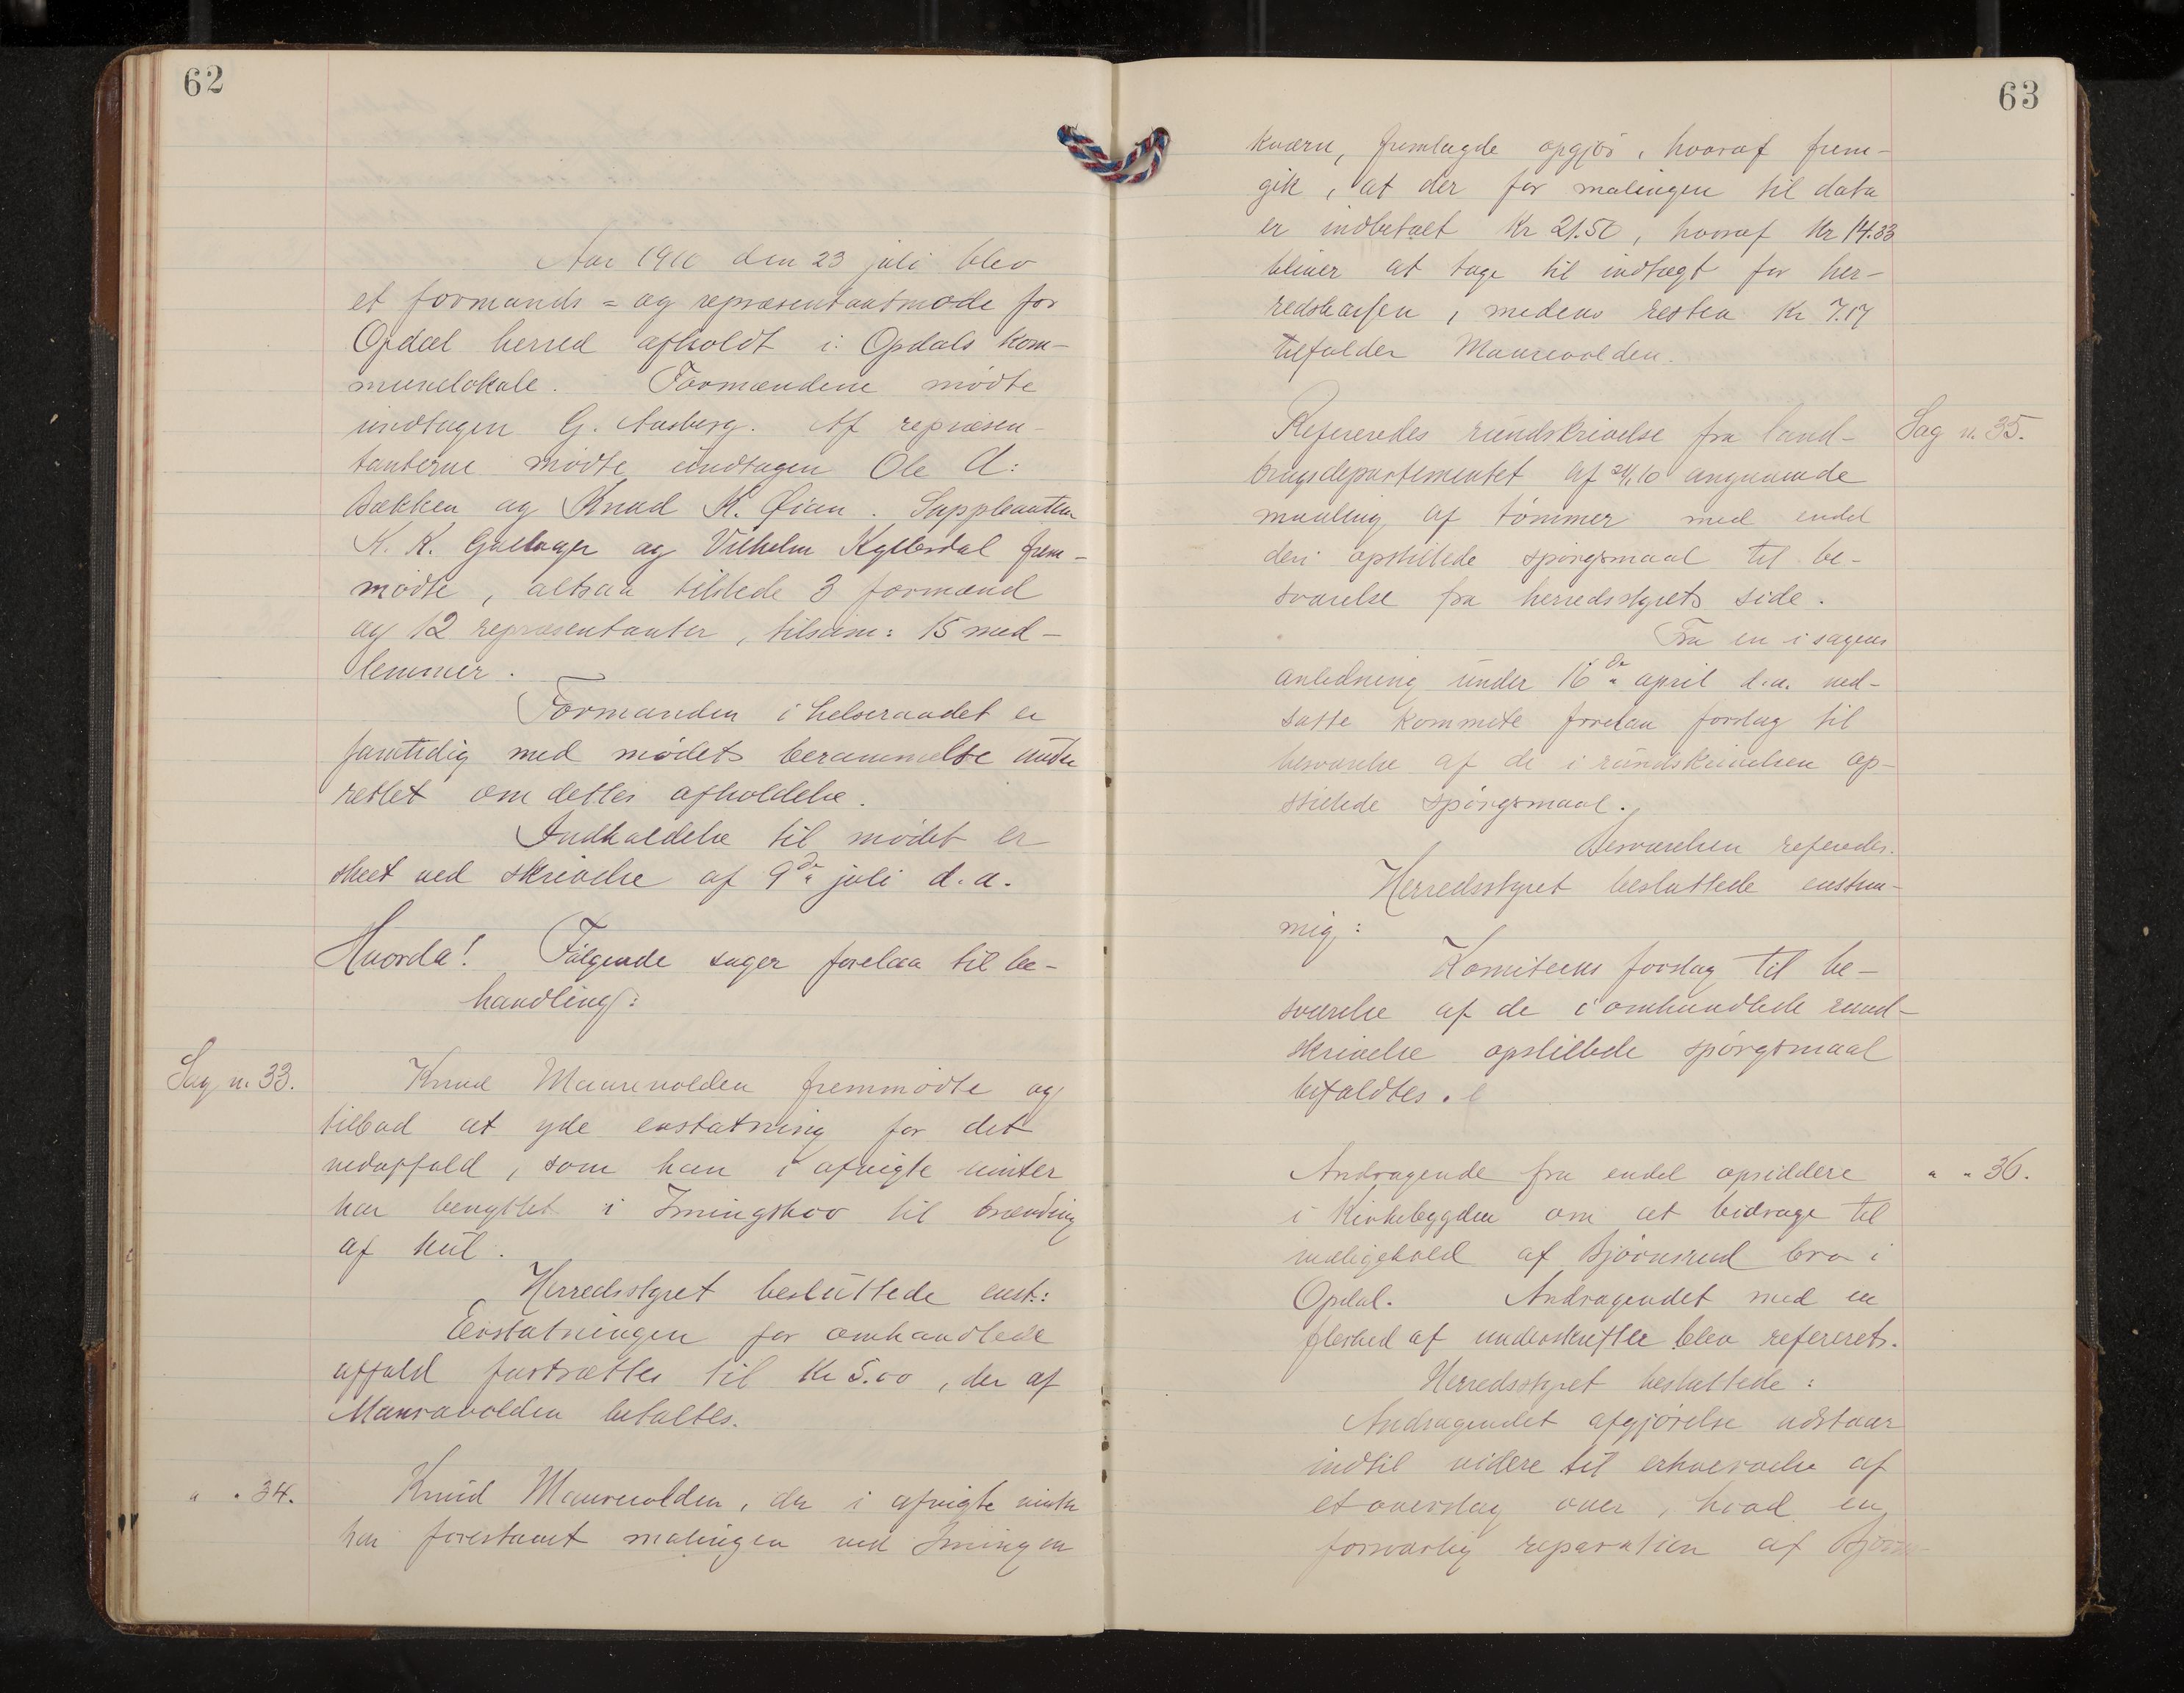 62
Aar 1910 den 23 juli blev
et formands= og repræsentantmøde for
Opdal herred afholdt i Opdals kom-
munelokale. Formændene mødte
undtagen G. Aasberg. Af repræsen-
tanterne mødte undtagen Ole A:
Bakken og Knud K. Øian. Suppleanten
K. K. og Vilhelm frem-
mødte, altsaa tilstede 3 formænd
og 12 repræsentanter, tilsam: 15 med-
lemmer.
Formanden i helseraadet er
samtidig med mødets berammelse under
rettet om dettes afholdelse.
Indkaldelse til mødet er
skeet ved skrivelse af 9de juli d.a.
Hvorda! Følgende sager forelaa til be-
handling:
Sag n. 33.
Knud Maurevolden fremmødte og
tilbød at yde erstatning for det
vedaffald, som han i afvigte vinter
har benyttet i Imingskov til brænding
af kul.
Herredsstyret besluttede enst.:
Erstatningen for omhandlede
affald fastsættes til Kr 5.00, der af
Mauravolden betaltes.
" " 34.
Knud Maurevolden, der i afvigte vinter
har forestaaet malingen ved Imingen
63
kværn, fremlagde opgjør, hvoraf frem-
gik, at der for malingen til dato
er indbetalt Kr 21.50, hvoraf Kr 14.33
bliver at tage til indtægt for her-
redskassen, medens resten Kr 7.17
tilfalder Maurevolden.
Sag n. 35.
Refereredes rundskrivelse fra land-
brugsdepartementet af angaaende
maaling af tømmer med endel
deri opstillede spørgsmaal til be-
svarelse fra herredsstyrets side.
Fra en i sagens
anledning under 16de april d.a. ned-
satte kommite forelaa forslag til
besvarelse af de i rundskrivelsen op-
stillede spørgsmaal.
Besvarelsen referedes.
Herredsstyret besluttede enstem-
mig:
Komiteens forslag til be-
svarelse af de i omhandlede rund-
skrivelse opstillede spørgsmaal
bifaldtes.
" " 36.
Andragende fra endel opsiddere
i Kirkebygden om at bidrage til
vedligehold af Bjørnsrud bro i
Opdal. Andragendet med en
flerhed af underskrifter blev refereret.
Herredsstyret besluttede:
Andragendet afgjørelse udstaar
indtil videre til erhvervelse af
et overslag over, hvad en
forsvarlig reparation af Bjørn-